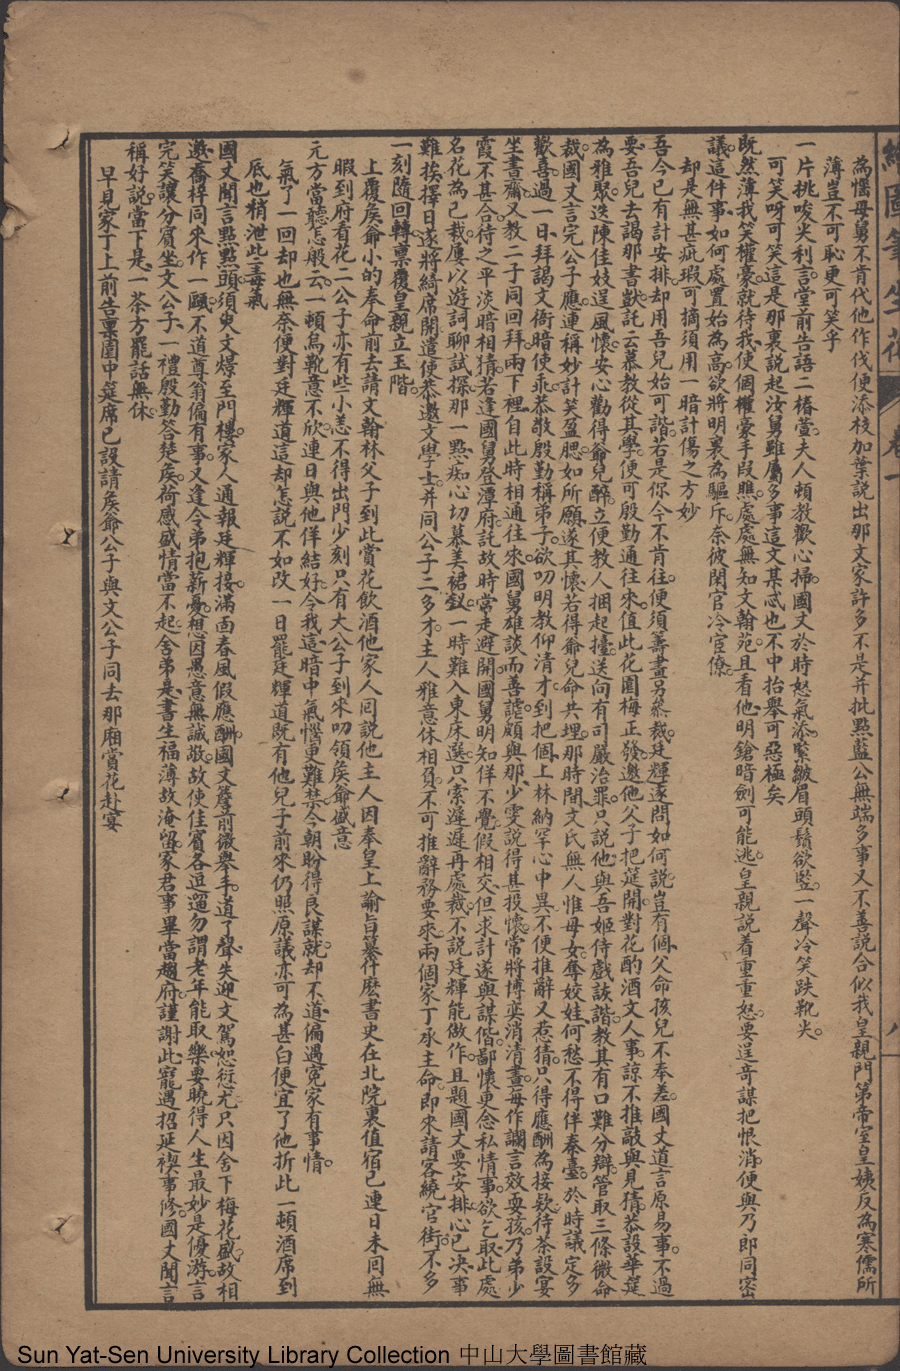 繪圖筆生花 卷一 八
為懦母舅不肯代他作伐便添枝加葉説出那文家許多不是并批點藍公無端多事又不善説合似我皇親門第帝室皇姨反為寒儒所
薄豈不可恥更可笑乎
一片挑唆尖利言堂前告語二椿萱夫人頓教歡心掃國丈於時怒氣添緊皺眉頭鬚欲竪一聲冷笑跌靴尖
可笑呀可笑這是那裏説起汝舅雖屬多事這文某忒也不中抬舉可惡極矣
既然薄我笑權豪就待我使個權豪手段瞧處處無知文翰苑且看他明鎗暗劍可能逃皇親説着重重怒要逞奇謀把恨消便與乃郎同密
議這件事如何處置始為高欲將明裏為驅斥奈彼閑官冷宦僚
却是無甚疵瑕可摘須用一暗計傷之方妙
吾今已有計安排却用吾兒始可諧若是你今不肯往便須籌畫另蔡裁廷輝遂問如何説豈有個父命孩兒不奉差國丈道言原易事不過
要吾兒去謁那書獃託云慕教從其學便可殷勤通往來值此花園梅正發邀他父子把筵開對花酌酒文人事諒不推敲與見猜恭設華筵
為雅聚迭陳佳妓逞風懷安心勸得爺兒醉立便教人捆起擡送向有司嚴治罪只説他與吾姬侍戲詼諧教其有口難分辯管取三條微命
裁國丈言完公子應連稱妙計笑盈腮如所願遂其懷若得爺兒命共埋那時間文氏無人惟母女奪姣娃何愁不得伴秦臺於時議定多
歡喜過一日拜謁文衙暗使乖恭敬殷勤稱弟子欲叨明教仰清才到把個上林納罕心中異不便推辭又惹猜只得應酬為接欵待茶設宴
坐書齋又教二子同回拜兩下裡自此時相通往來國舅雄談而善謔頗與那少雯説得甚投懷常將博奕消清晝每作讕言效耍孩乃弟少
霞不甚合待之平淡暗相猜若逢國舅登潭府託故時常走避開國舅明知佯不覺假相交但求計遂與謀偕鄙懷更念私情事欲乞取此處
名花為己栽屢以遊詞聊試探那一點痴心切慕美裙釵一時難入東床選只索遲遲再處裁不説廷輝能做作且題國丈要安排心已决事
難挨擇日遂將綺席開遣使恭邀文學士并同公子二多才主人雅意休相負不可推辭務要來兩個家丁承主命即來請客繞官街不多
一刻隨回轉稟覆皇親立玉階
上覆侯爺小的奉命前去請文翰林父子到此賞花飲酒他家人同説他主人因奉皇上諭旨纂什麽書史在北院裏值宿已連日未回無
暇到府看花二公子亦有些小恙不得出門少刻只有大公子到來叨領侯爺盛意
元方當聽怎般云一頓烏靴意不欣連日與他佯結好今我這暗中氣惱更難禁今朝盼得良謀就却不道偏遇寃家有事情
氣了一回却也無奈便對廷輝道這却怎説不如改一日罷廷輝道既有他兒子前來仍照原議亦可為甚白便宜了他折此一頓酒席到
底也稍泄此毒氣
國丈聞言點點頭須臾文爆至門樓家人通報廷輝接滿面春風假應酬國丈簷前微舉手道了聲失迎文駕恕愆尤只因舍下梅花盛故相
邀喬梓同來作一酬不道尊翁偏有事又逢令弟抱薪憂想因愚意無誠敬故使佳賓各逗遛勿謂老年能取樂要曉得人生最妙是優游言
完笑讓分賓坐文公子一禮殷勤答楚侯荷感盛情當不起舍弟是書生福薄故淹留家君事畢當趨府謹謝此寵遇招延禊事修國丈聞言
稱好説當下是一茶方罷話無休
早見家丁上前告稟園中筵席已設請侯爺公子與文公子同去那廂賞花赴宴
Sun Yat-Sen University Library Collection 中山大學圖書館藏